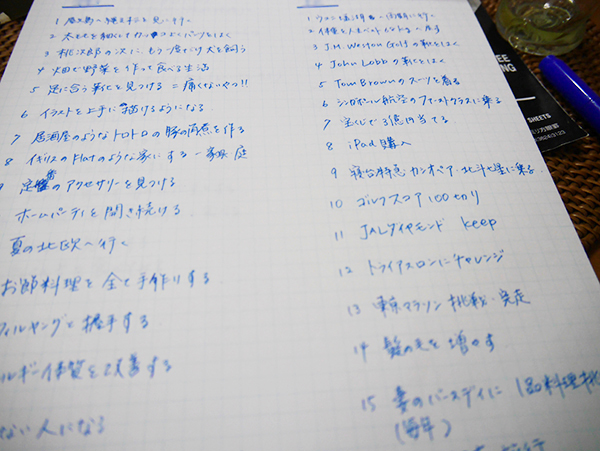 1 屋久島へ縄文杉を見に行く
2 太ももを細くしてカッコよくパンツをはく
3 桃次郎の次に、もう一度だけ犬を飼う
4 畑で野菜を作って食べる生活
5 足に合う靴を見つける = 痛くないやつ!!
6 イラストを上手に描けるようになる
7 居酒屋のようなトロトロの豚の角煮を作る
8 イギリスのFlatのような家にする
9 定番のアクセサリーを見つける
ホームパーティを開き続ける
夏の北欧へ行く
お節料理を全て手作りする
と握手する
ルギー体質を改善する
ない人になる
3 J.M. Weston Golfの靴をはく
4 John Lobbの靴をはく
5 Tom Brownのスーツを着る
6 シンガポール航空のファーストクラスに乗る
7 宝くじで3億円当てる
8 iPad 購入
9 寝台特急カシオペア・北斗星に乗る
10 ゴルフスコア100切り
11 JALダイヤモンド keep
12 トライアスロンにチャレンジ
13 東京マラソン挑戦・完走
14 髪の毛を増やす
15 妻のバースデイに1品料理
(毎年)
SHEETS